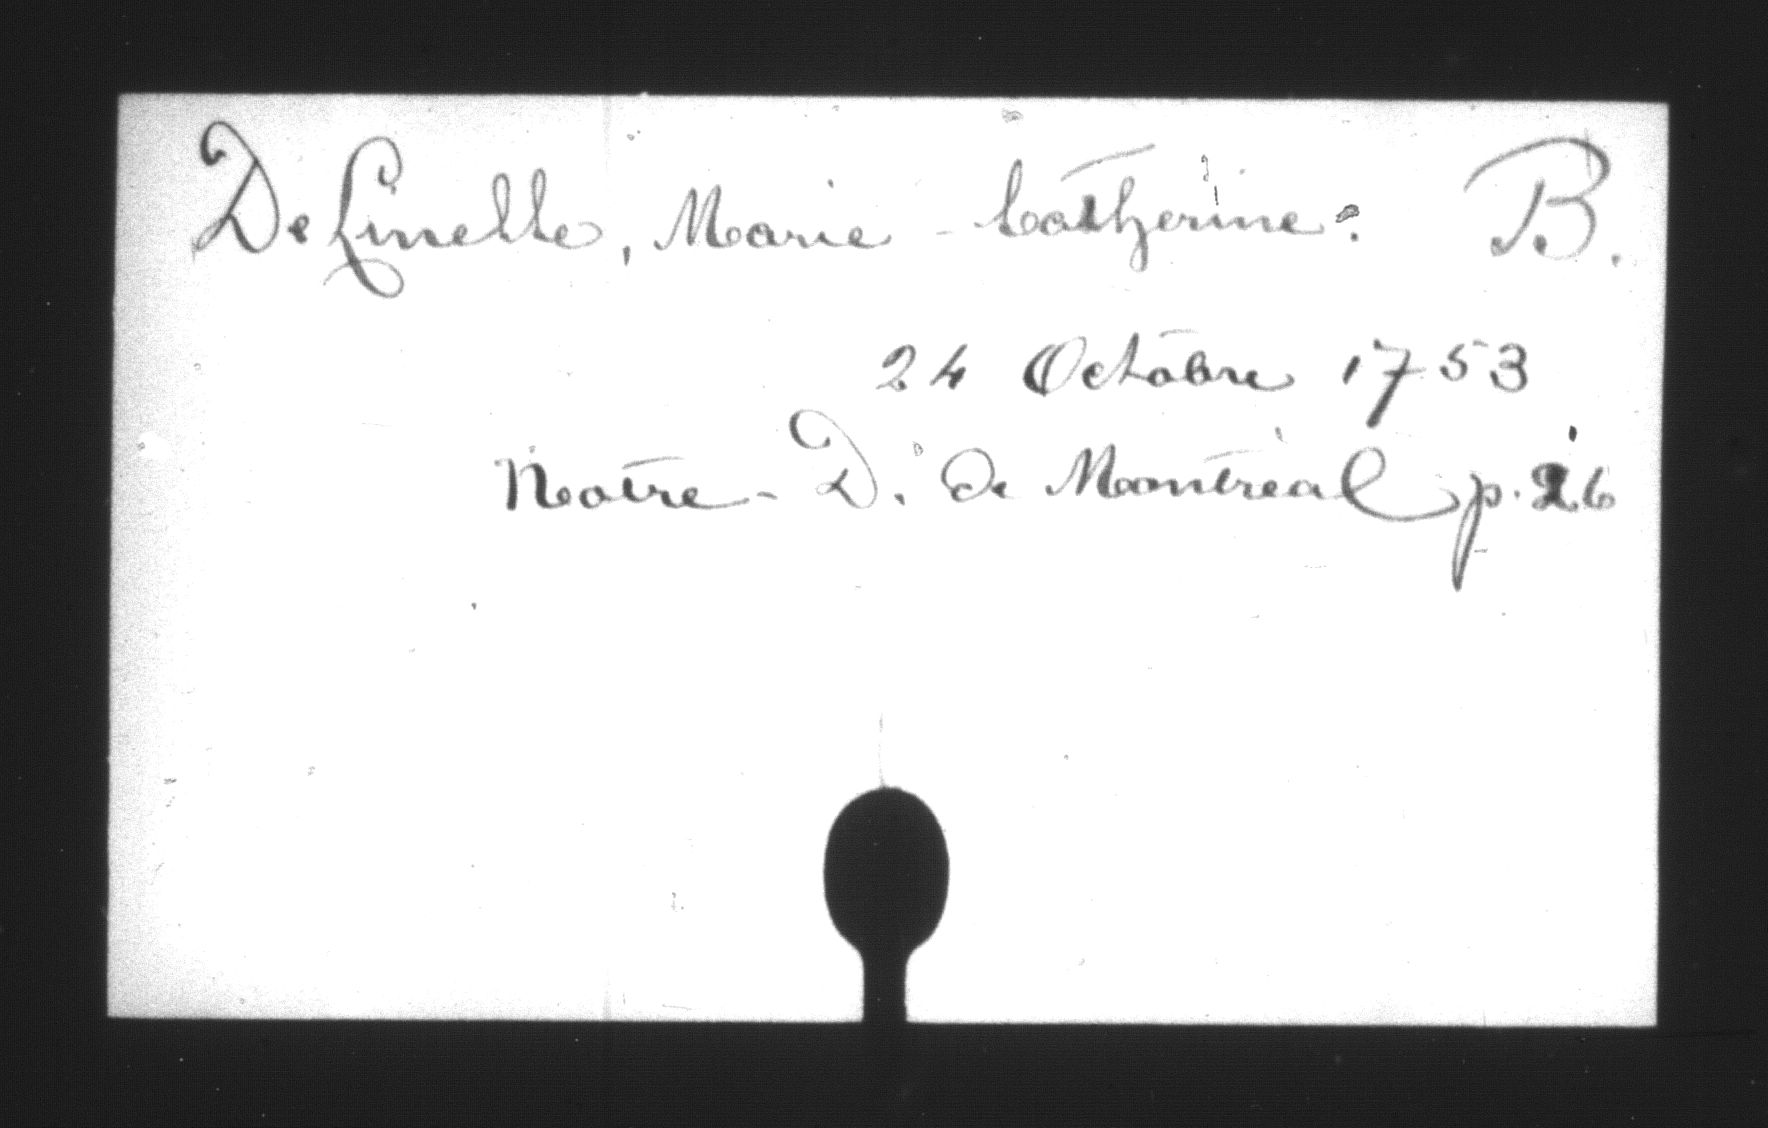 DeLinelle, Marie-Catherine. B.
24 Octobre 1753
Notre-D. de Montréal p. 26